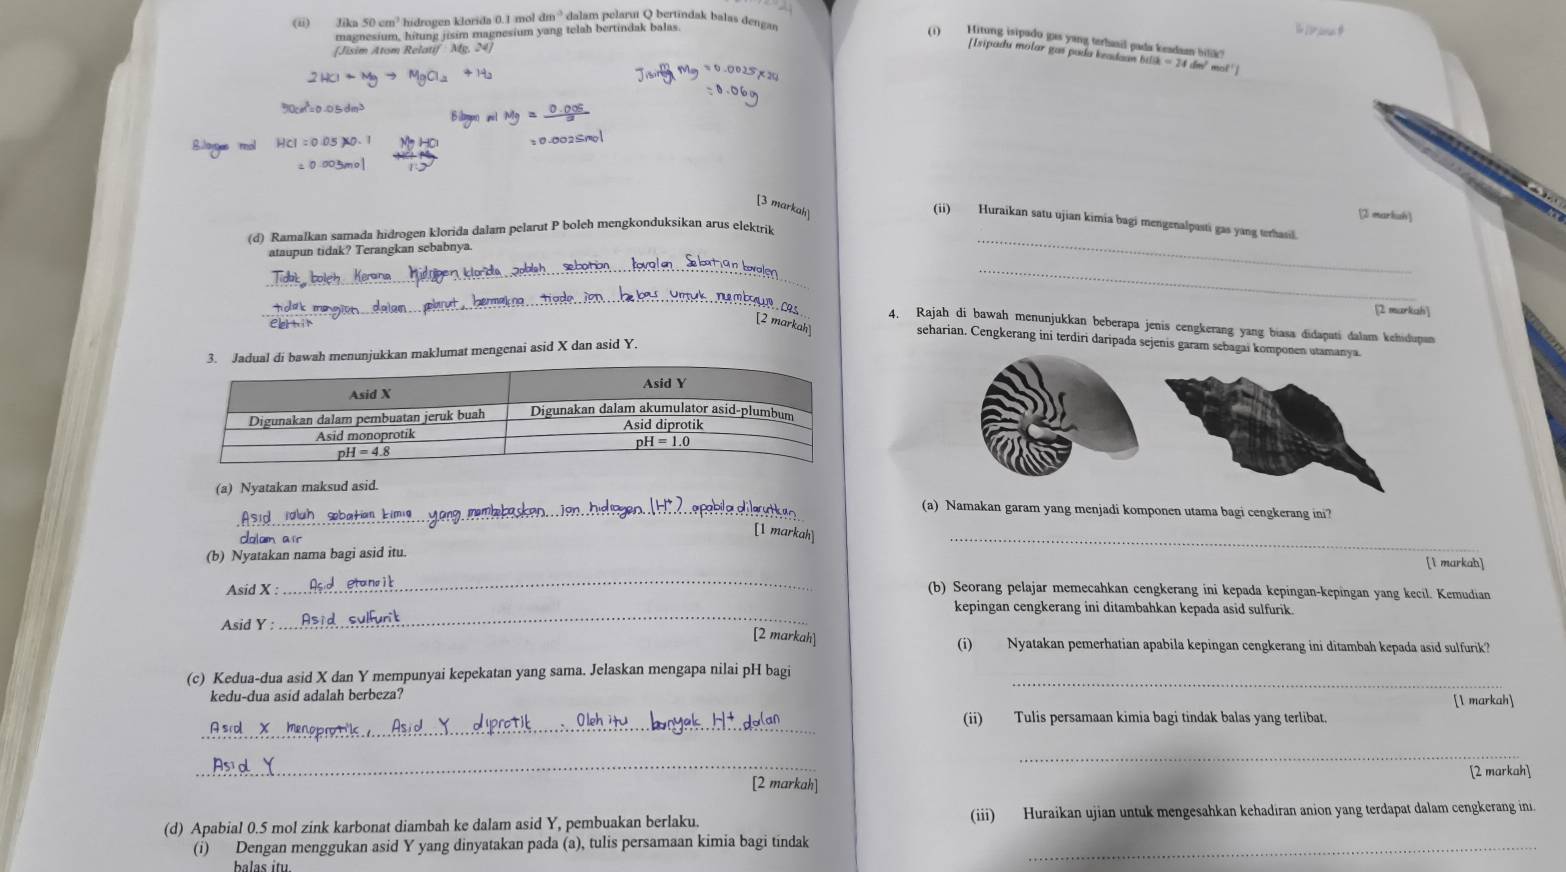 (ii) Jika 50 cm³ hidrogen klorida 0.1 mol dm⁻³ dalam pelarut Q bertindak balas dengan
magnesium, hitung jisim magnesium yang telah bertindak balas.
[Jisim Atom Relatif : Mg, 24]
2HCl + Mg → MgCl₂ + H₂
50cm³=0.05dm³
mol HCl = 0.05 x0.1
= 0.005mol
Mg HCl
1:2
mol Mg = 0.005/2
= 0.0025mol
Jisim Mg = 0.0025x24
= 0.06g
[3 markah]
(d) Ramalkan samada hidrogen klorida dalam pelarut P boleh mengkonduksikan arus elektrik
ataupun tidak? Terangkan sebabnya.
Tidak boleh. Kerana hidrogen klorida adalah sebatian kovalen. Sebatian kovalen
tidak mengion dalam pelarut, bermakna tiada ion bebas untuk membawa cas
elektrik
[2 markah]
3. Jadual di bawah menunjukkan maklumat mengenai asid X dan asid Y.
Asid X Asid Y
Digunakan dalam pembuatan jeruk buah Digunakan dalam akumulator asid-plumbum
Asid monoprotik Asid diprotik
pH = 4.8 pH = 1.0
(a) Nyatakan maksud asid.
Asid ialah sebatian kimia yang membebaskan ion hidrogen (H⁺) apabila dilarutkan
dalam air
[1 markah]
(b) Nyatakan nama bagi asid itu.
Asid X : Asid etanoik
Asid Y : Asid sulfurik
[2 markah]
(c) Kedua-dua asid X dan Y mempunyai kepekatan yang sama. Jelaskan mengapa nilai pH bagi
kedu-dua asid adalah berbeza?
Asid X menoprotik, Asid Y diprotik. Oleh itu banyak H⁺ dalan
Asid Y
[2 markah]
(d) Apabial 0.5 mol zink karbonat diambah ke dalam asid Y, pembuakan berlaku.
(i) Dengan menggukan asid Y yang dinyatakan pada (a), tulis persamaan kimia bagi tindak
balas itu.
(i) Hitung isipadu gas yang terhasil pada keadaan bilik?
[Isipadu molar gas pada keadaan bilik = 24 dm³ mol⁻¹]
[2 markah]
(ii) Huraikan satu ujian kimia bagi mengenalpasti gas yang terhasil.
[2 markah]
4. Rajah di bawah menunjukkan beberapa jenis cengkerang yang biasa didapati dalam kehidupan
seharian. Cengkerang ini terdiri daripada sejenis garam sebagai komponen utamanya.
(a) Namakan garam yang menjadi komponen utama bagi cengkerang ini?
[1 markah]
(b) Seorang pelajar memecahkan cengkerang ini kepada kepingan-kepingan yang kecil. Kemudian
kepingan cengkerang ini ditambahkan kepada asid sulfurik.
(i) Nyatakan pemerhatian apabila kepingan cengkerang ini ditambah kepada asid sulfurik?
[1 markah]
(ii) Tulis persamaan kimia bagi tindak balas yang terlibat.
[2 markah]
(iii) Huraikan ujian untuk mengesahkan kehadiran anion yang terdapat dalam cengkerang ini.